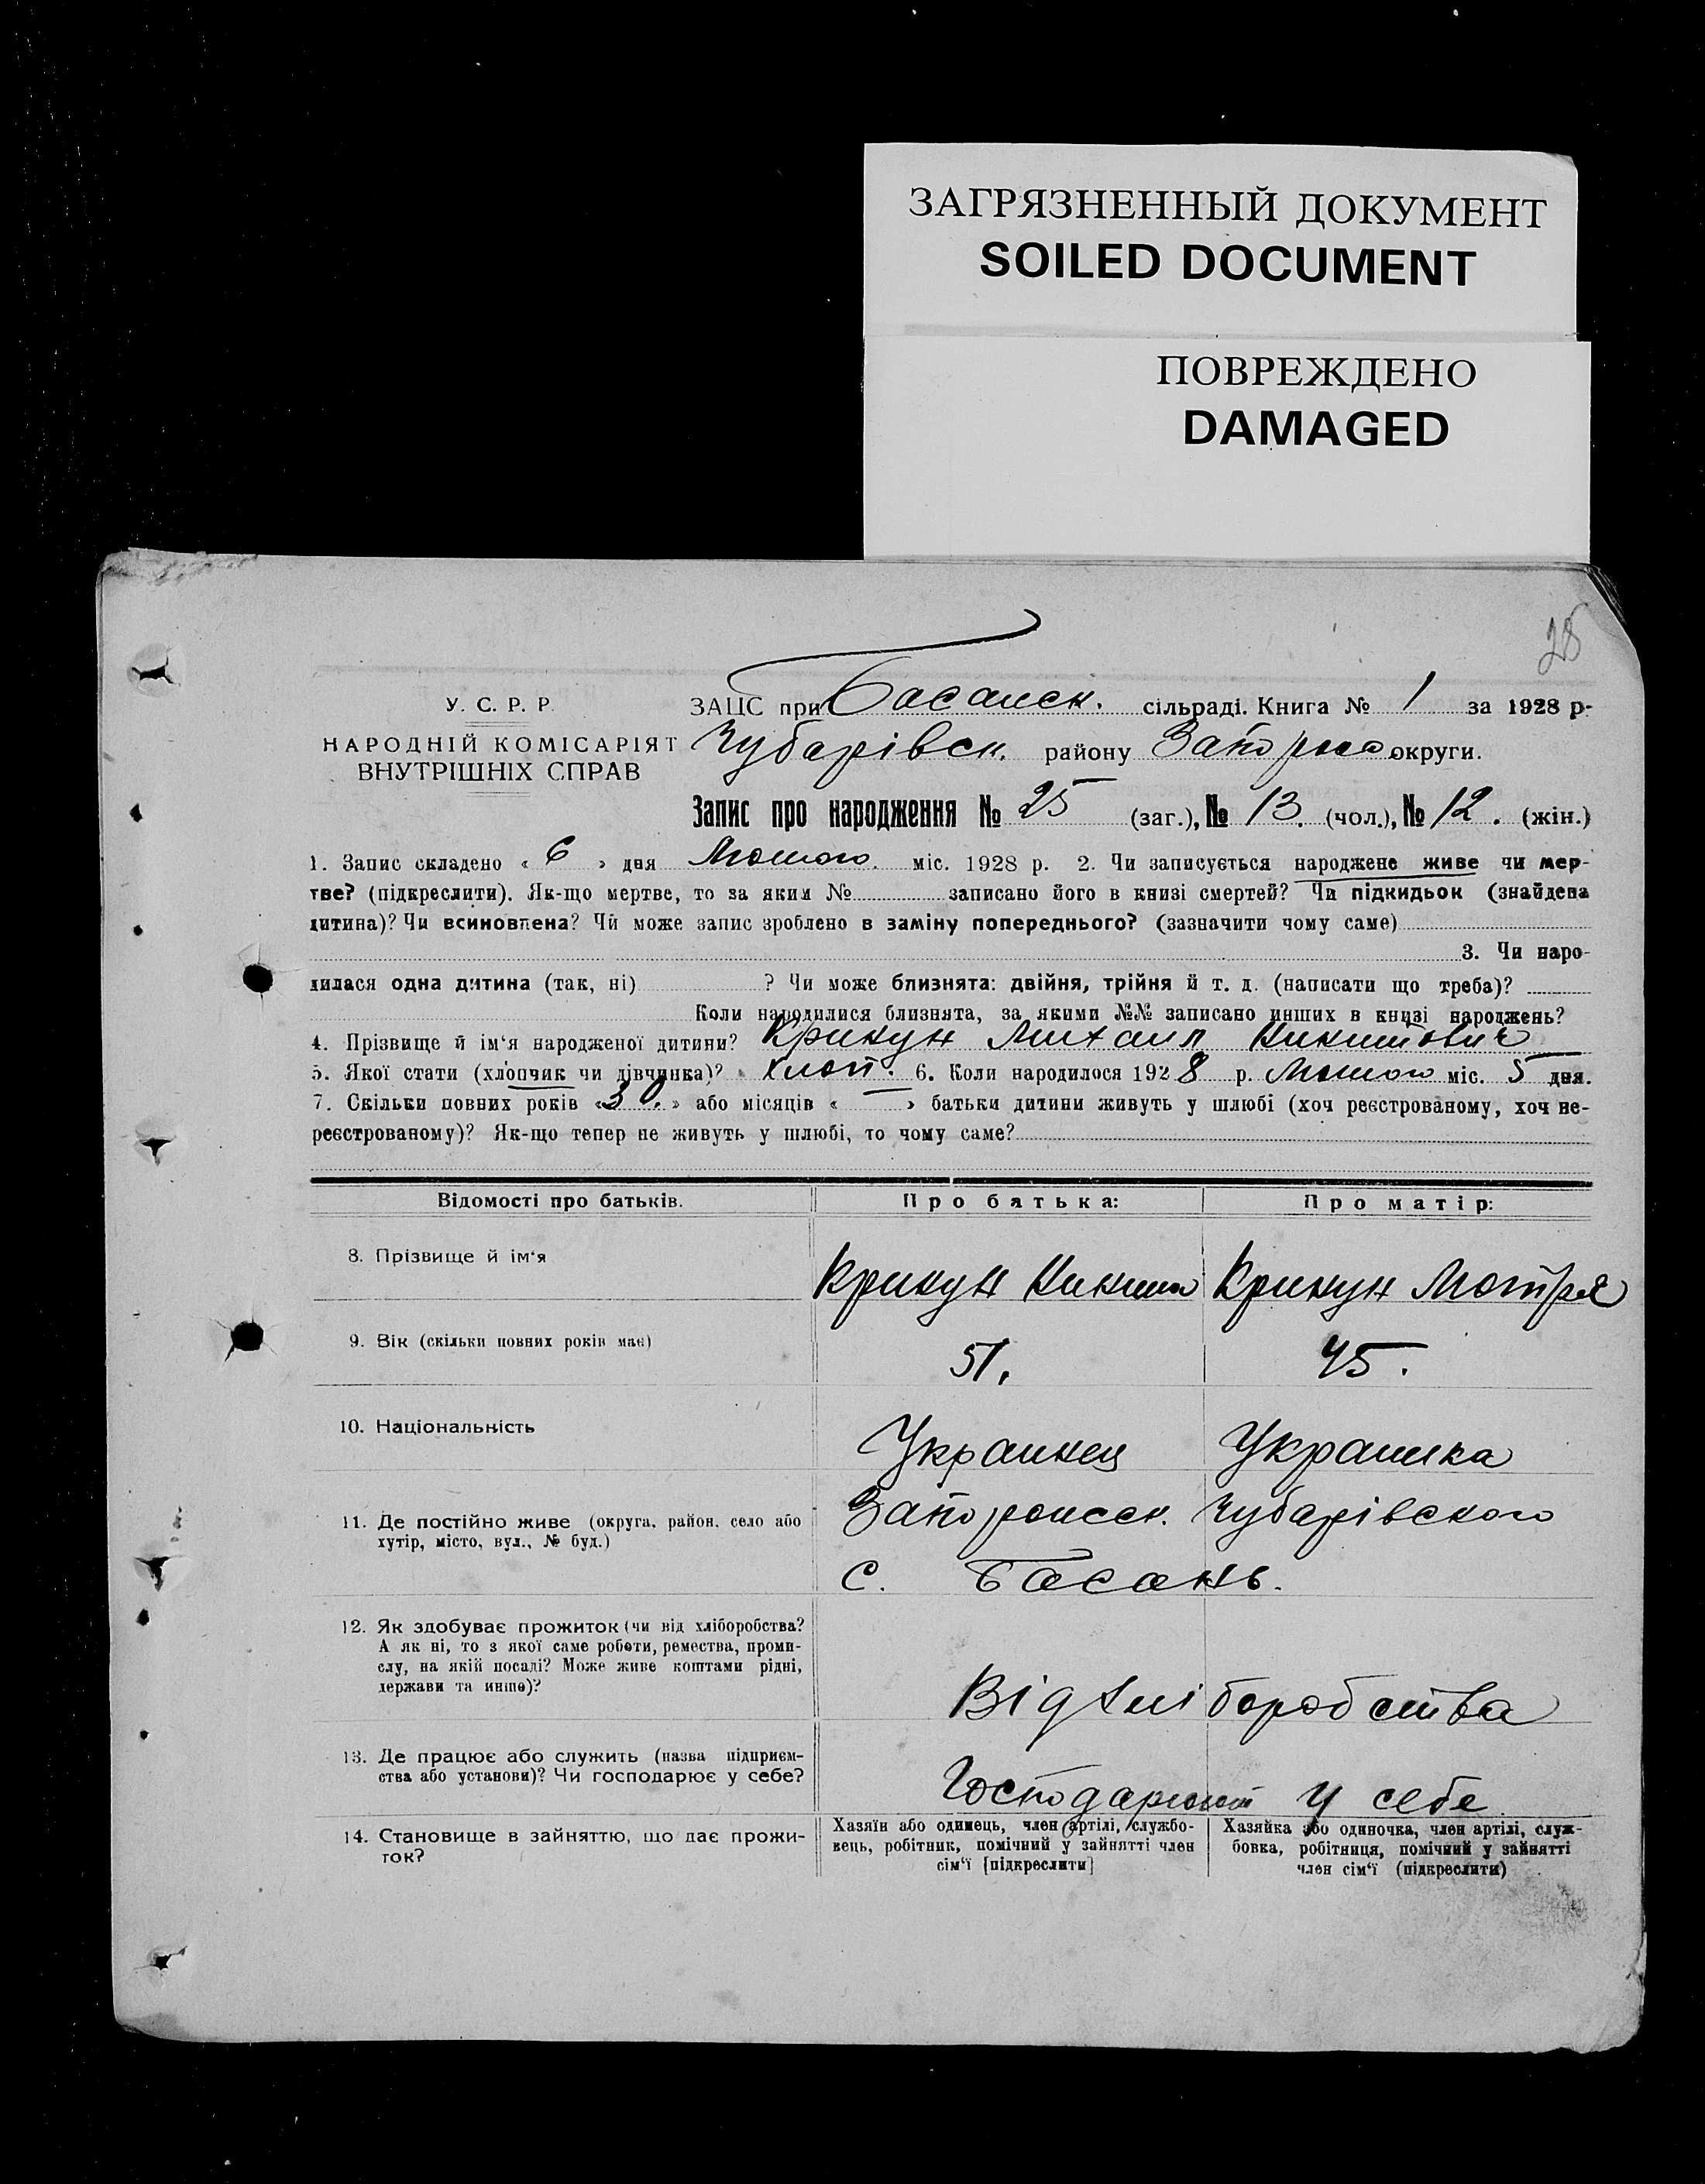 ЗАГРЯЗНЕННЫЙ ДОКУМЕНТ
SOILED DOCUMENT
ПОВРЕЖДЕНО
DAMAGED
28
У. С. Р. Р.
НАРОДНІЙ КОМІСАРІЯТ
ВНУТРІШНІХ СПРАВ
ЗАЦС при Басанск. сільраді. Книга № 1 за 1928 р-
Чубарівск. району Запорож округи.
Запис про народження № 25 (заг.), № 13. (чол.), № 12. (жін.)
1. Запис складено « 6 » дня Лютого. міс. 1928 р. 2. Чи записується народжене живе чи мер-
тве? (підкреслити). Як-що мертве, то за яким № записано його в книзі смертей? Чи підкидьок (знайдена
дитина)? Чи всиновлена? Чи може запис зроблено в заміну попереднього? (зазначити чому саме)
3. Чи наро-
дилася одна дитина (так, ні) ? Чи може близнята: двійня, трійня й т. д. (написати що треба)?
Коли народилися близнята, за якими №№ записано инших в книзі народжень?
4. Прізвище й ім'я народженої дитини? Крикун Михаил Никитович
5. Якої стати (хлопчик чи дівчинка)? Хлоп. 6. Коли народилося 1928 р. Лютого міс. 5 дня.
7. Скільки повних років «30.» або місяців « — » батьки дитини живуть у шлюбі (хоч реєстрованому, хоч не-
реєстрованому)? Як-що тепер не живуть у шлюбі, то чому саме?
Відомості про батьків. Про батька: Про матір:
8. Прізвище й ім'я Крикун Никита Крикун Мотря
9. Вік (скільки повних років має) 51. 45.
10. Національність Украинец Украинка
11. Де постійно живе (округа, район, село або Запорожск. Чубарівского
хутір, місто, вул., № буд.) с. Басань.
12. Як здобуває прожиток (чи від хліборобства?
А як ні, то з якої саме роботи, ремества, проми-
слу, на якій посаді? Може живе коштами рідні,
держави та инше)? Від хліборобства
13. Де працює або служить (назва підприєм-
ства або установи)? Чи господарює у себе? Господарюют у себе
14. Становище в зайняттю, що дає прожи-
ток?
Хазяїн або одинець, член артілі, службо-
вець, робітник, помічний у зайнятті член
сім'ї [підкреслити]
Хазяйка або одиночка, член артілі, служ-
бовка, робітниця, помічний у зайнятті
член сім'ї (підкреслити)